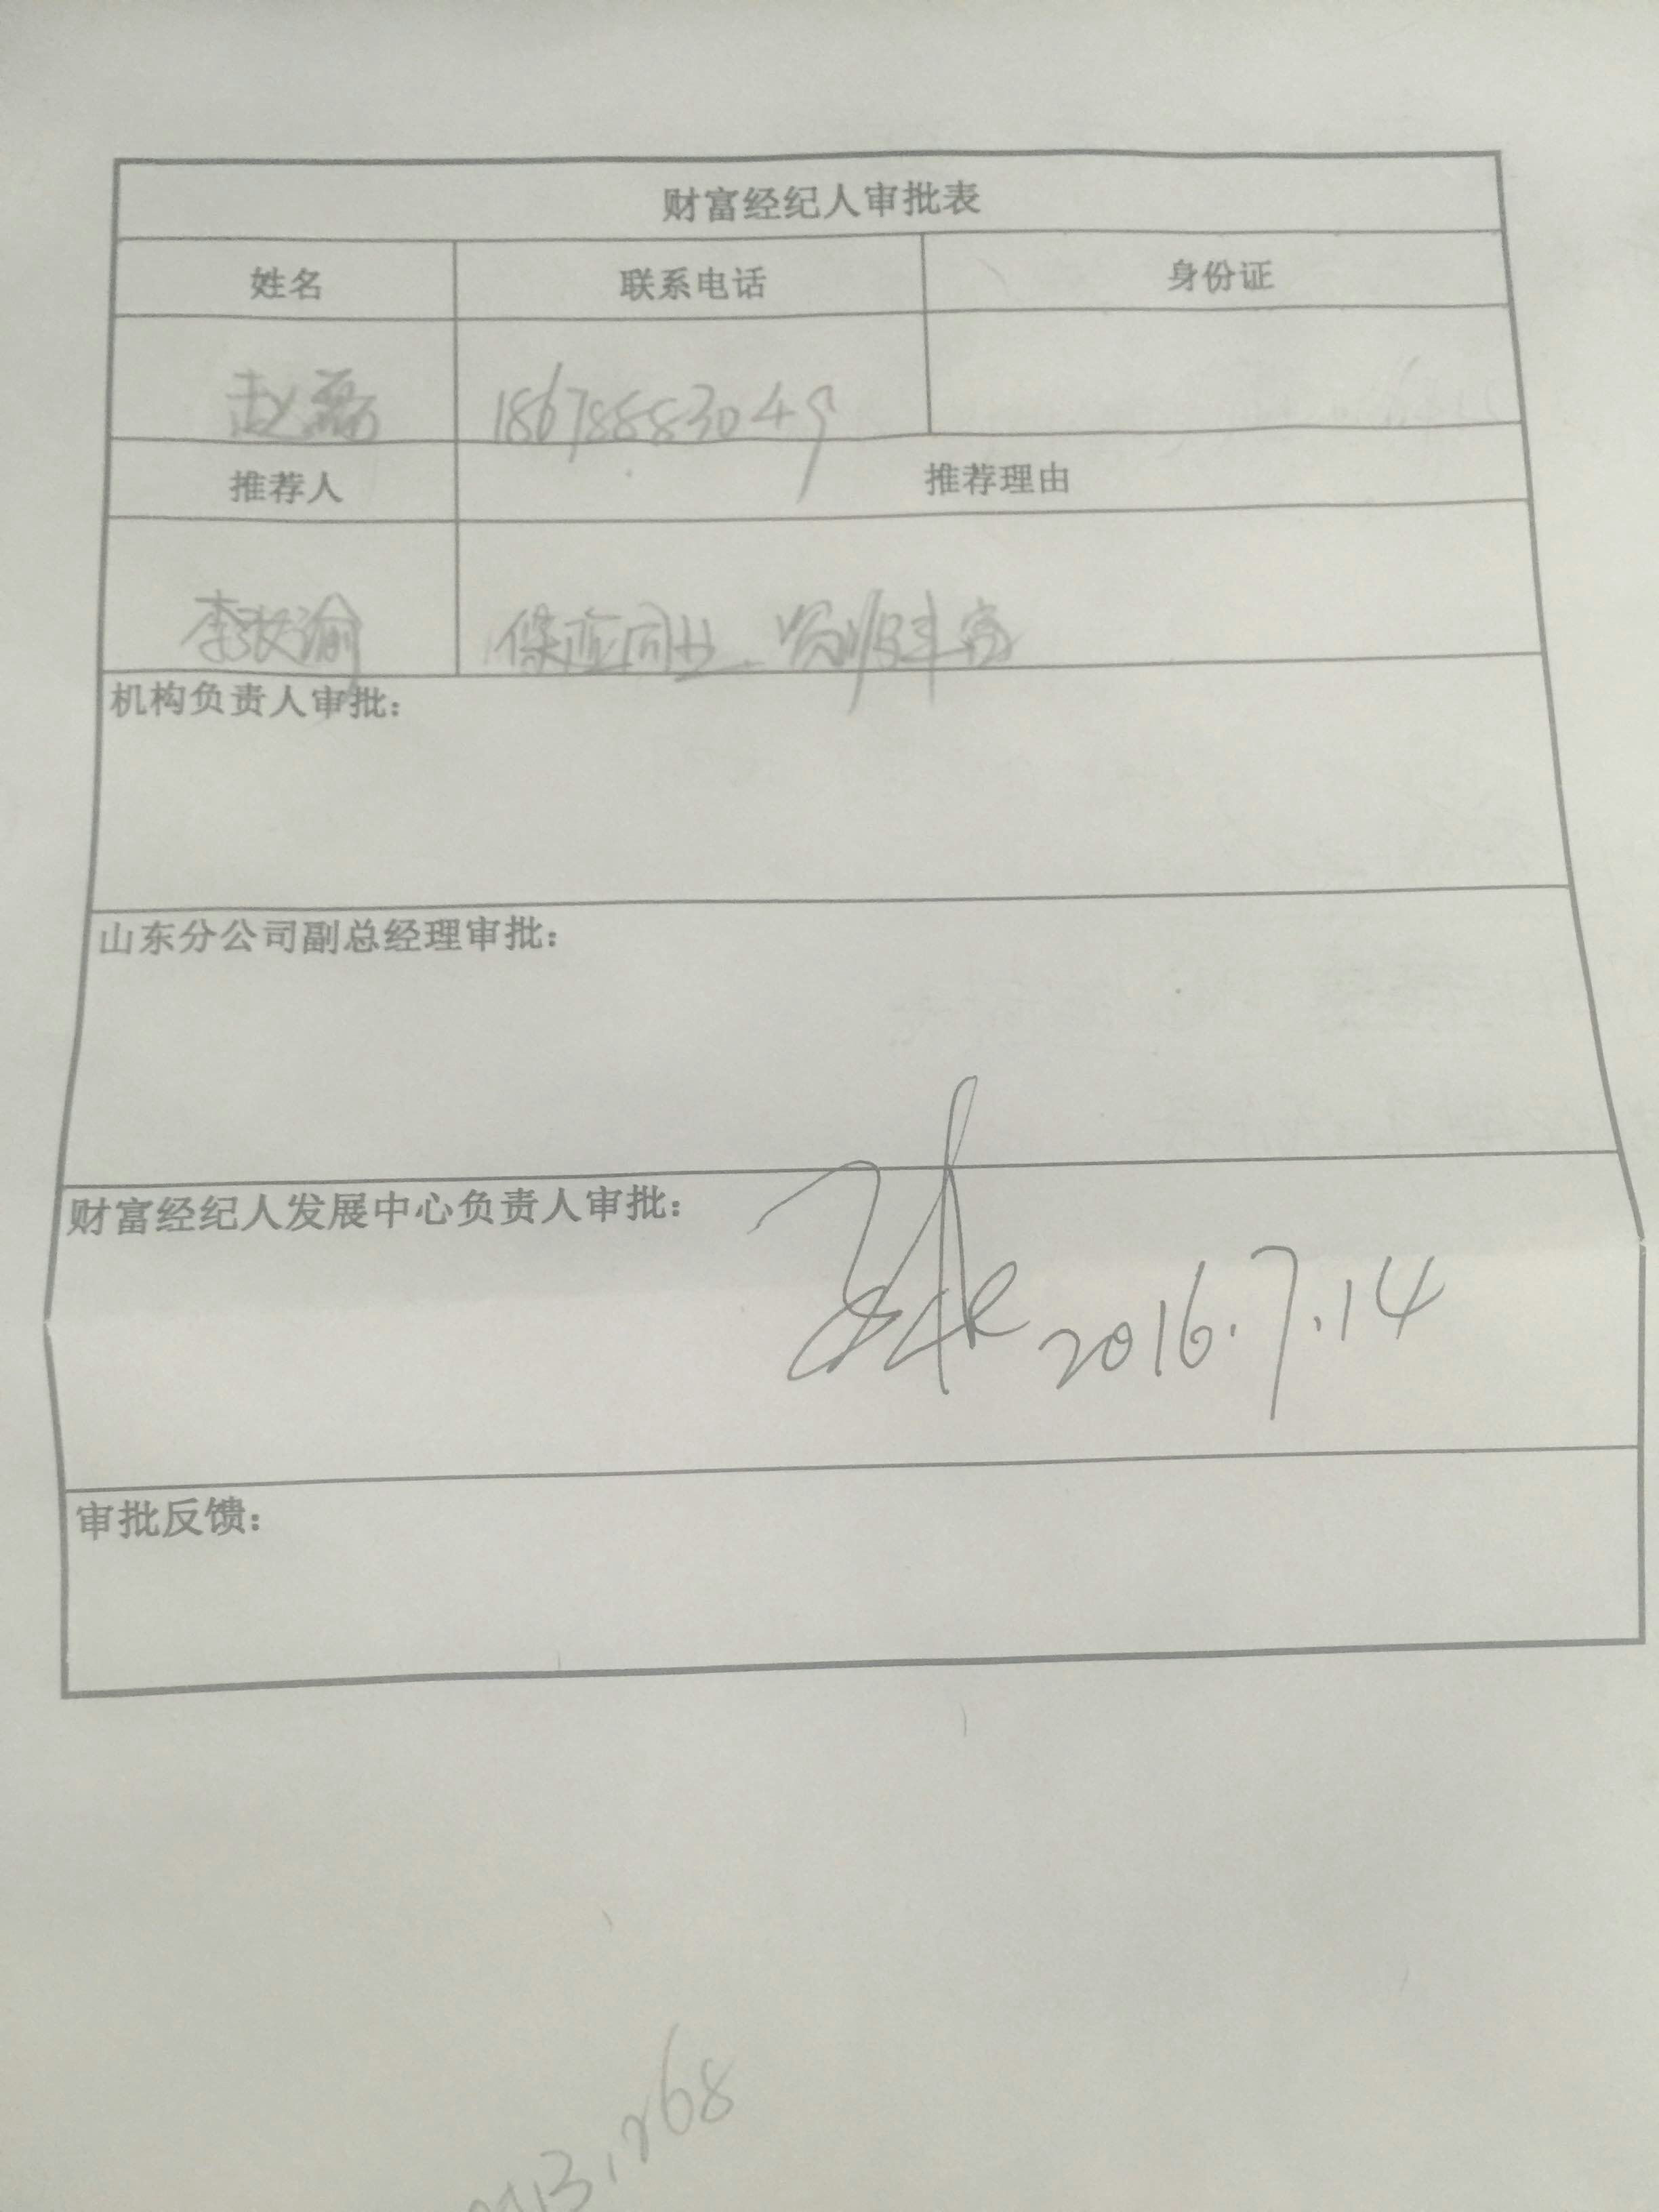 财富经纪人审批表
姓名 联系电话 身份证
赵磊 18678883049
推荐人 推荐理由
李 渝 保险同业 资源丰富
机构负责人审批：
山东分公司副总经理审批：
财富经纪人发展中心负责人审批：
2016.7.14
审批反馈：